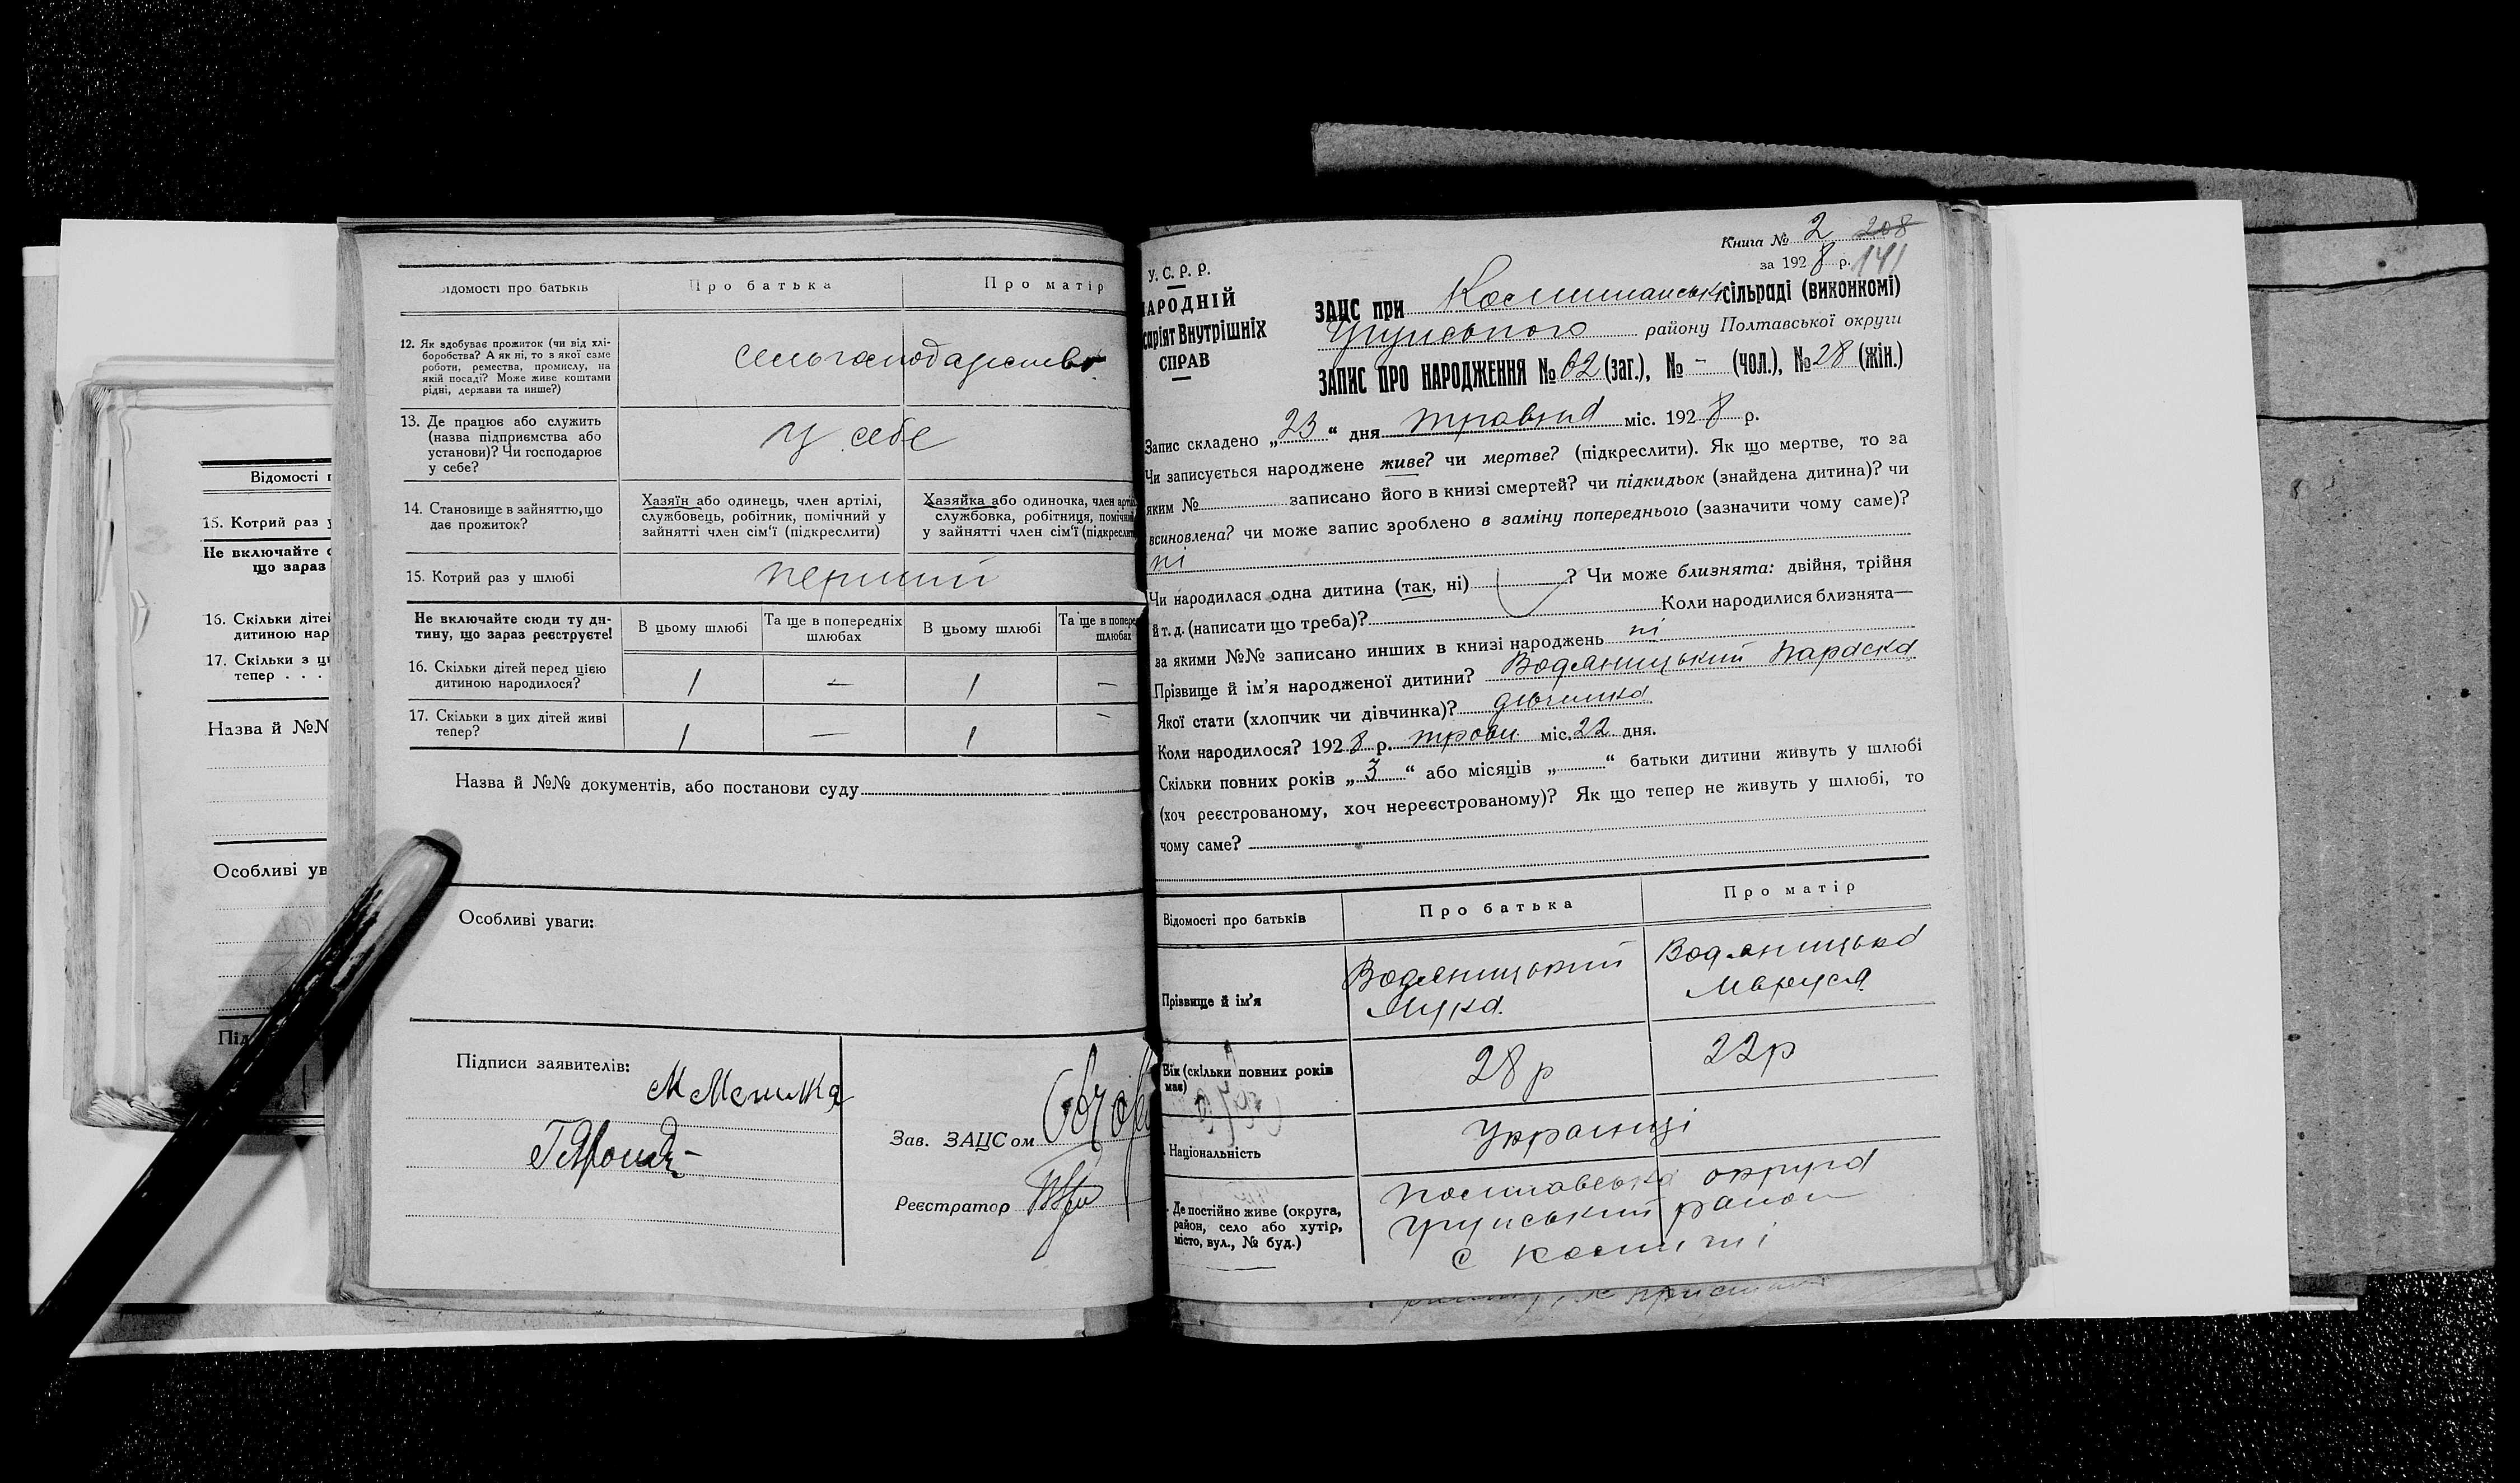 Відомості п
15. Котрий раз у
Не включайте с
що зараз
16. Скільки діте
дитиною нар
17. Скільки з ц
тепер . . .
Назва й №№
Особливі ув
Під
ідомості про батьків
Про батька
Про матір
12. Як здобуває прожиток (чи від хлі-
боробства? А як ні, то з якої саме
роботи, ремества, промислу, на
якій посаді? Може живе коштами
рідні, держави та инше?)
сельгосподарство
13. Де працює або служить
(назва підприємства або
установи)? Чи господарює
у себе?
у себе
14. Становище в зайняттю, що
дає прожиток?
Хазяїн або одинець, член артілі,
службовець, робітник, помічний у
зайнятті член сім'ї (підкреслити)
Хазяйка або одиночка, член арті
службовка, робітниця, помічни
у зайнятті член сім'ї (підкреслит
15. Котрий раз у шлюбі
перший
Не включайте сюди ту ди-
тину, що зараз реєструєте!
В цьому шлюбі
Та ще в попередніх
шлюбах
В цьому шлюбі
Та ще в попере
шлюбах
16. Скільки дітей перед цією
дитиною народилося?
1 — 1 —
17. Скільки з цих дітей живі
тепер?
1 — 1 —
Назва й №№ документів, або постанови суду
Особливі уваги:
Підписи заявителів:
Зав. ЗАЦСом
Реєстратор
Книга № 2 208
за 1928 р. 141
У. С. Р. Р.
АРОДНІЙ
саріят Внутрішніх
СПРАВ
ЗАЦС при сільраді (виконкомі)
району Полтавської округи
ЗАПИС ПРО НАРОДЖЕННЯ № 62 (заг.), № - (чол.), № 28 (жін.)
Запис складено „23“ дня травня міс. 1928 р.
Чи записується народжене живе? чи мертве? (підкреслити). Як що мертве, то за
яким № записано його в книзі смертей? чи підкидьок (знайдена дитина)? чи
всиновлена? чи може запис зроблено в заміну попереднього (зазначити чому саме)?
ні
Чи народилася одна дитина (так, ні) ? Чи може близнята: двійня, трійня
й т. д. (написати що треба)? Коли народилися близнята—
за якими №№ записано инших в книзі народжень ні
Прізвище й ім'я народженої дитини? Водяницький Параска
Якої стати (хлопчик чи дівчинка)? дівчинка
Коли народилося? 1928 р. трав міс. 22 дня.
Скільки повних років „3“ або місяців „ “ батьки дитини живуть у шлюбі
(хоч реєстрованому, хоч нереєстрованому)? Як що тепер не живуть у шлюбі, то
чому саме?
Відомості про батьків
Про батька
Про матір
Прізвище й ім'я
Водяницький
Лука.
Водяницька
Маруся
Вік (скільки повних років
має)
28 р
22 р
Національність
Українці
Де постійно живе (округа,
район, село або хутір,
місто, вул., № буд.)
Полтавська округа
район
с